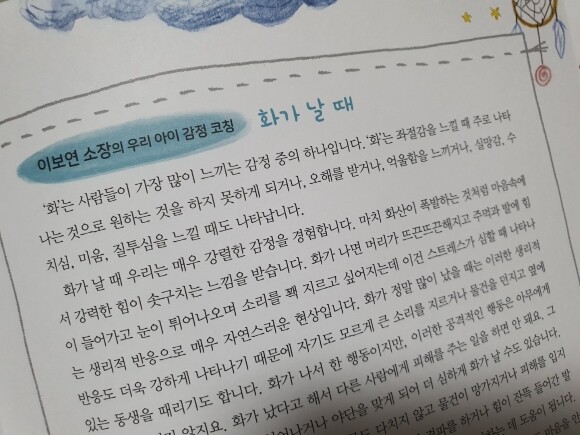 이보연 소장의 우리 아이 감정 코칭
화가 날 때
‘화’는 사람들이 가장 많이 느끼는 감정 중의 하나입니다. ‘화’는 좌절감을 느낄 때 주로 나타
나는 것으로 원하는 것을 하지 못하게 되거나, 오해를 받거나, 억울함을 느끼거나, 실망감, 수
치심, 미움, 질투심을 느낄 때도 나타납니다.
화가 날 때 우리는 매우 강렬한 감정을 경험합니다. 마치 화산이 폭발하는 것처럼 마음속에
서 강력한 힘이 솟구치는 느낌을 받습니다. 화가 나면 머리가 뜨끈뜨끈해지고 주먹과 발에 힘
이 들어가고 눈이 튀어나오며 소리를 꽥 지르고 싶어지는데 이건 스트레스가 심할 때 나타나
는 생리적 반응으로 매우 자연스러운 현상입니다. 화가 정말 많이 났을 때는 이러한 생리적
반응도 더욱 강하게 나타나기 때문에 자기도 모르게 큰 소리를 지르거나 물건을 던지고 옆에
있는 동생을 때리기도 합니다. 화가 나서 한 행동이지만, 이러한 공격적인 행동은 아무에게
않지요. 화가 났다고 해서 다른 사람에게 피해를 주는 일을 하면 안 돼요. 그
야단을 맞게 되어 더 심하게 화가 날 수도 있습니다.
다치지 않고 물건이 망가지거나 피해를 입지
하거나 힘이 잔뜩 들어간 발
데 도움이 됩니다.